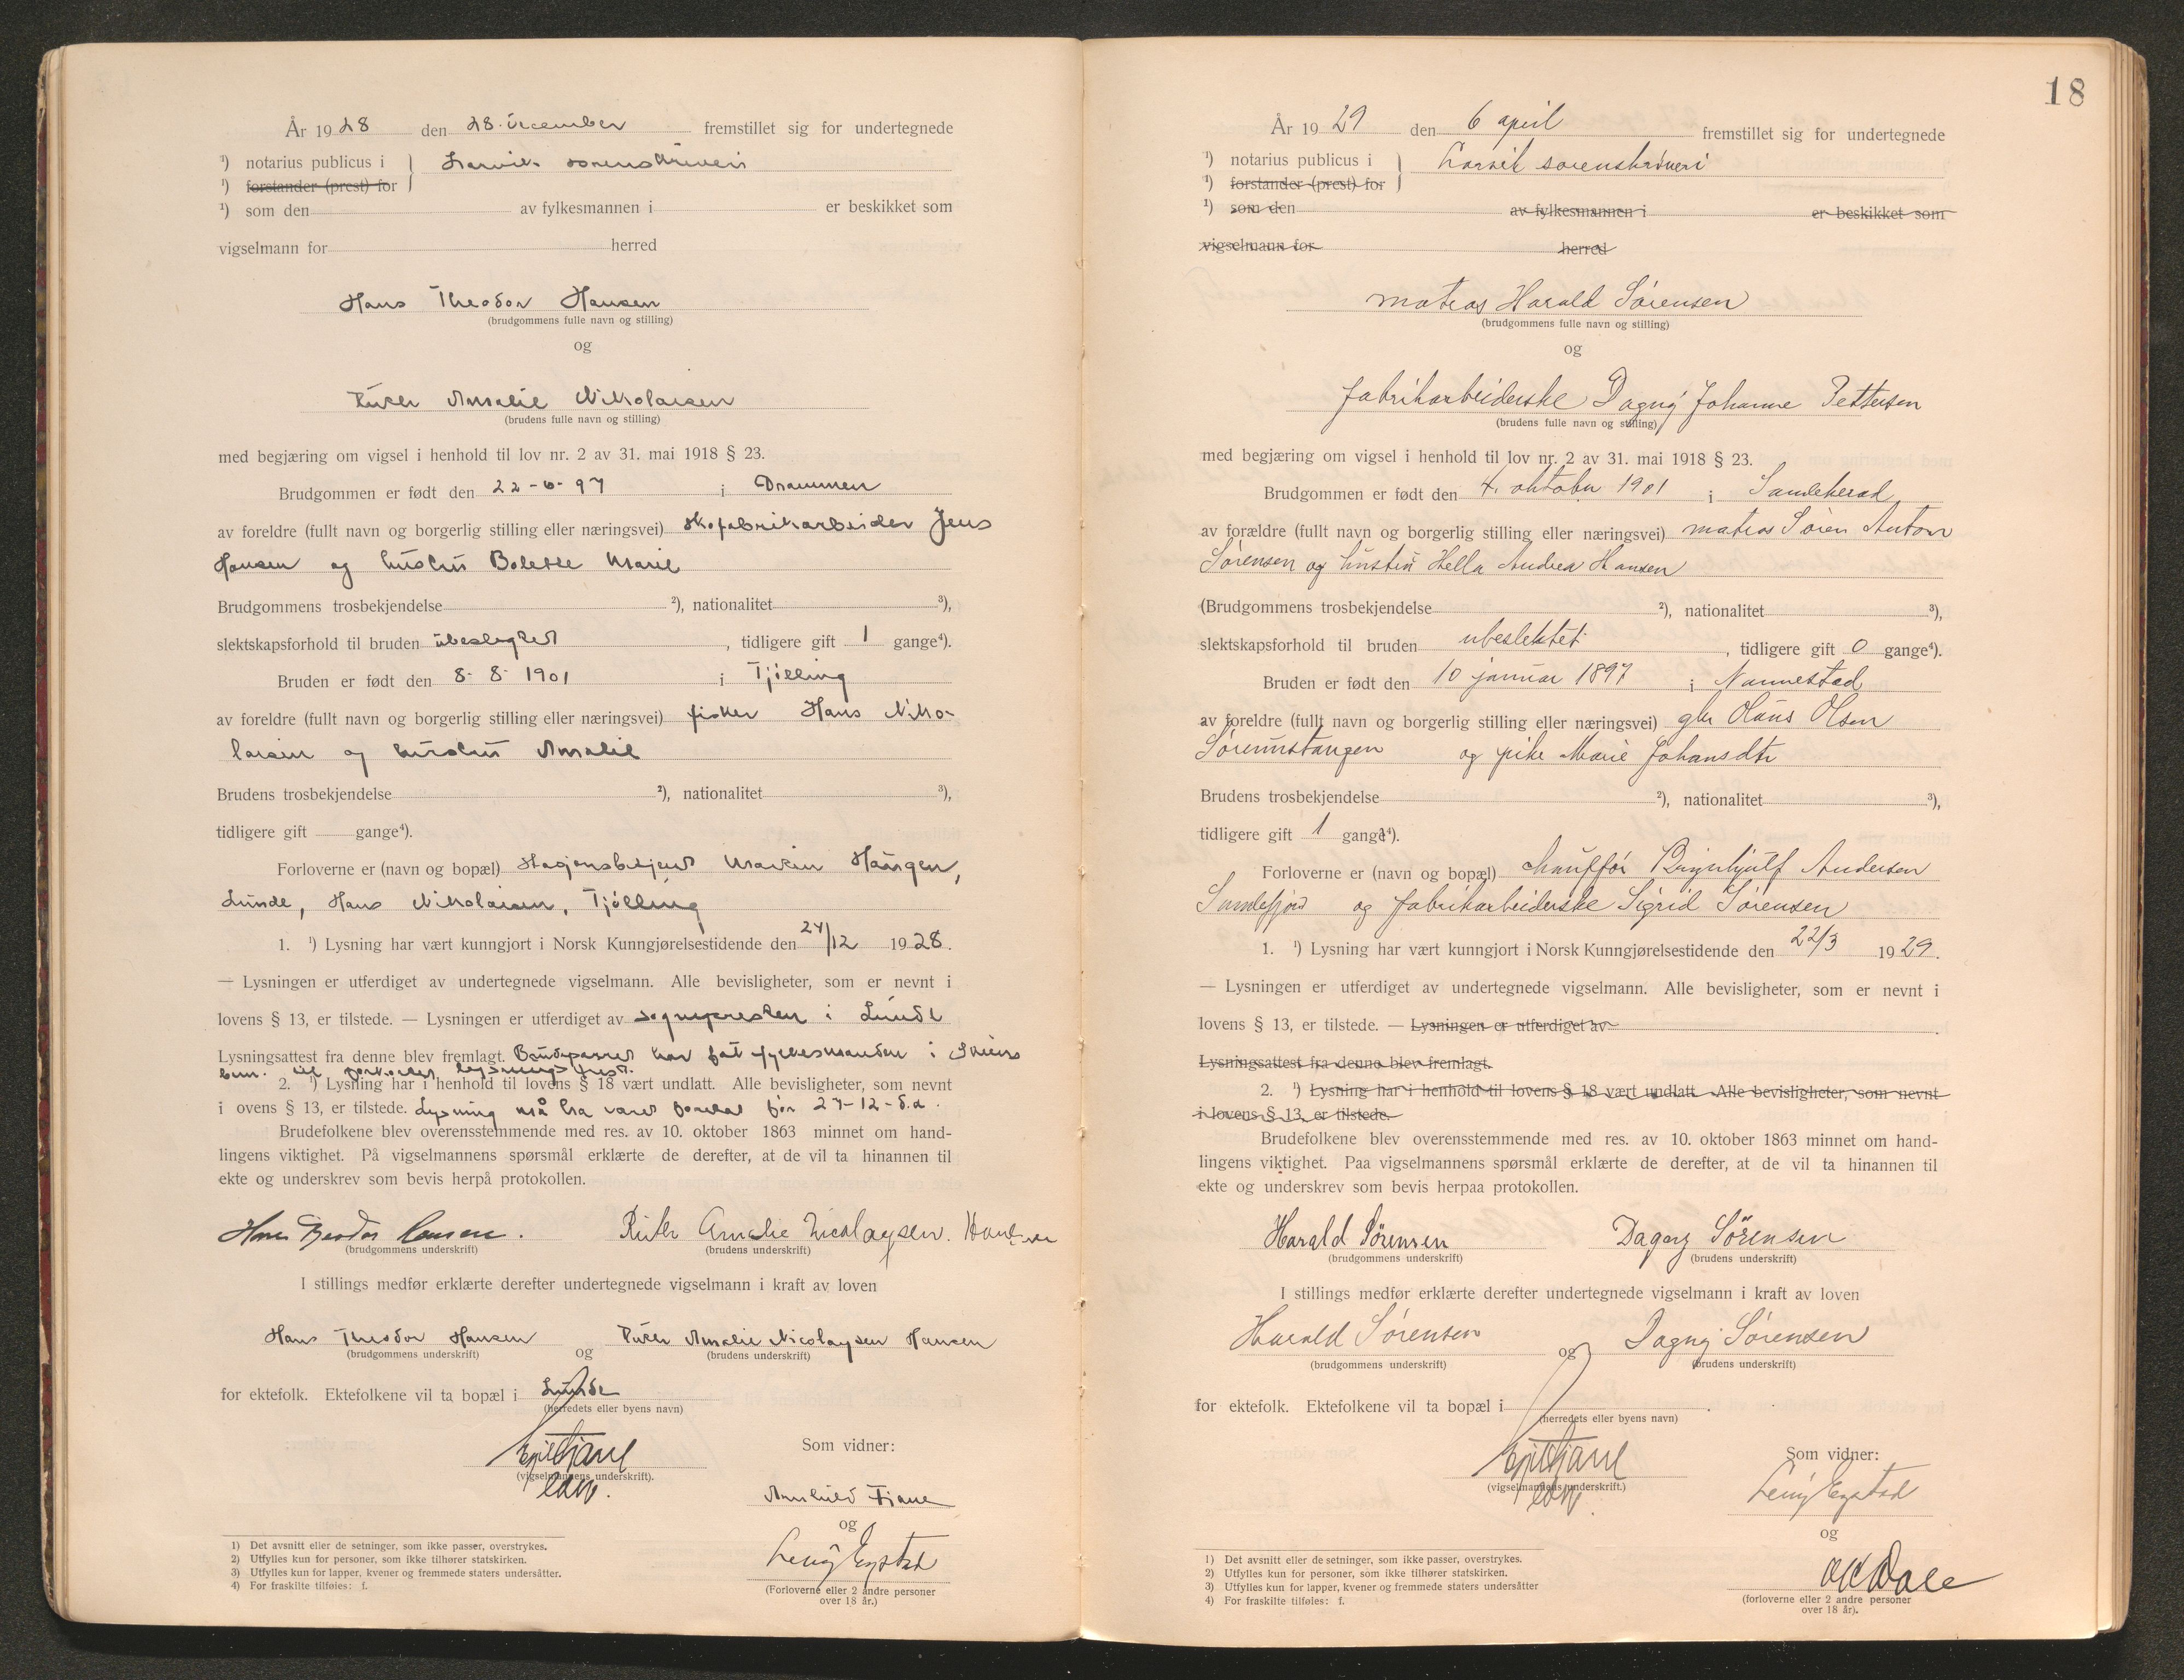 År 1928 den 28. december fremstillet sig for undertegnede
¹) notarius publicus i Larvik sorenskriveri
¹) forstander (prest) for
¹) som den av fylkesmannen i er beskikket som
vigselmann for herred
Hans Theodor Hansen
(brudgommens fulle navn og stilling)
og
Ruth Amalie Nikolaisen
(brudens fulle navn og stilling)
med begjæring om vigsel i henhold til lov nr. 2 av 31. mai 1918 § 23.
Brudgommen er født den 22-6-97 i Drammen
av foreldre (fullt navn og borgerlig stilling eller næringsvei) skofabrikarbeider Jens
Hansen og hustru Bolette Marie
Brudgommens trosbekjendelse ²), nationalitet ³),
slektskapsforhold til bruden ubeslegtet, tidligere gift 1 gange⁴).
Bruden er født den 8-8-1901 i Tjølling
av foreldre (fullt navn og borgerlig stilling eller næringsvei) fisker Hans Niko-
laisen og hustru Amalie
Brudens trosbekjendelse ²), nationalitet ³),
tidligere gift gange⁴).
Forloverne er (navn og bopæl) Haugen,
Lunde, Hans Nikolaisen, Tjølling
1. ¹) Lysning har vært kunngjort i Norsk Kunngjørelsestidende den 24/12 1928.
— Lysningen er utferdiget av undertegnede vigselmann. Alle bevisligheter, som er nevnt i
lovens § 13, er tilstede. — Lysningen er utferdiget av sognepresten i Lunde
Lysningsattest fra denne blev fremlagt. Brudeparret har fåt fylkesmanden i Skiens
bem. til forkortet lysningsfrist.
2. ¹) Lysning har i henhold til lovens § 18 vært undlatt. Alle bevisligheter, som nevnt
i ovens § 13, er tilstede. Lysning må ha været foretat før 27-12-d.a.
Brudefolkene blev overensstemmende med res. av 10. oktober 1863 minnet om hand-
lingens viktighet. På vigselmannens spørsmål erklærte de derefter, at de vil ta hinannen til
ekte og underskrev som bevis herpå protokollen.
Hans Teodor Hansen. Ruth Amalie Nicolaysen. Hansen
(brudgommens underskrift) (brudens underskrift)
I stillings medfør erklærte derefter undertegnede vigselmann i kraft av loven
Hans Theodor Hansen og Ruth Amalie Nicolaysen Hansen
(brudgommens underskrift) (brudens underskrift)
for ektefolk. Ektefolkene vil ta bopæl i Lunde
(herredets eller byens navn)
Som vidner:
(vigselmannens underskrift).
Tjane
og
Leny Enstad
(Forloverne eller 2 andre personer
over 18 år.)
1) Det avsnitt eller de setninger, som ikke passer, overstrykes.
2) Utfylles kun for personer, som ikke tilhører statskirken.
3) Utfylles kun for lapper, kvener og fremmede staters undersåtter.
4) For fraskilte tilføies: f.
18
År 1929 den 6 april fremstillet sig for undertegnede
¹) notarius publicus i Larvik sorenskriveri
¹) forstander (prest) for
¹) som den av fylkesmannen i er beskikket som
vigselmann for herred
matros Harald Sørensen
(brudgommens fulle navn og stilling)
og
fabrikarbeiderske Dagny Johanne Pettersen
(brudens fulle navn og stilling)
med begjæring om vigsel i henhold til lov nr. 2 av 31. mai 1918 § 23.
Brudgommen er født den 4. oktober 1901 i Sandeherad
av forældre (fullt navn og borgerlig stilling eller næringsvei) matros Søren Anton
Sørensen og hustru Hella Andrea Hansen
(Brudgommens trosbekjendelse ²), nationalitet ³),
slektskapsforhold til bruden ubeslektet, tidligere gift 0 gange⁴).
Bruden er født den 10 januar 1897 i Nannestad
av foreldre (fullt navn og borgerlig stilling eller næringsvei) gbr Olaus Olsen
Sørumstangen og pike Marie Johansdtr
Brudens trosbekjendelse ²), nationalitet ³),
tidligere gift 1 gange⁴).
Forloverne er (navn og bopæl) chauffør Brynhjulf Andersen
Sandefjord og fabrikarbeiderske Sigrid Sørensen
1. ¹) Lysning har vært kunngjort i Norsk Kunngjørelsestidende den 22/3 1929.
— Lysningen er utferdiget av undertegnede vigselmann. Alle bevisligheter, som er nevnt i
lovens § 13, er tilstede. — Lysningen er utferdiget av
Lysningsattest fra denne blev fremlagt.
2. ¹) Lysning har i henhold til lovens § 18 vært undlatt. Alle bevisligheter, som nevnt
i lovens § 13, er tilstede.
Brudefolkene blev overensstemmende med res. av 10. oktober 1863 minnet om hand-
lingens viktighet. Paa vigselmannens spørsmål erklærte de derefter, at de vil ta hinannen til
ekte og underskrev som bevis herpaa protokollen.
Harald Sørensen Dagny Sørensen
(brudgommens underskrift) (brudens underskrift)
I stillings medfør erklærte derefter undertegnede vigselmann i kraft av loven
Harald Sørensen og Dagny Sørensen
(brudgommens underskrift) (brudens underskrift)
for ektefolk. Ektefolkene vil ta bopæl i .
(herredets eller byens navn)
Som vidner:
(vigselmannens underskrift.)
Leny Enstad
og
Dale
(forloverne eller 2 andre personer
over 18 år).
1) Det avsnitt eller de setninger, som ikke passer, overstrykes.
2) Utfylles kun for personer, som ikke tilhører statskirken.
3) Utfylles kun for lapper, kvener og fremmede staters undersåtter
4) For fraskilte tilføles: f.